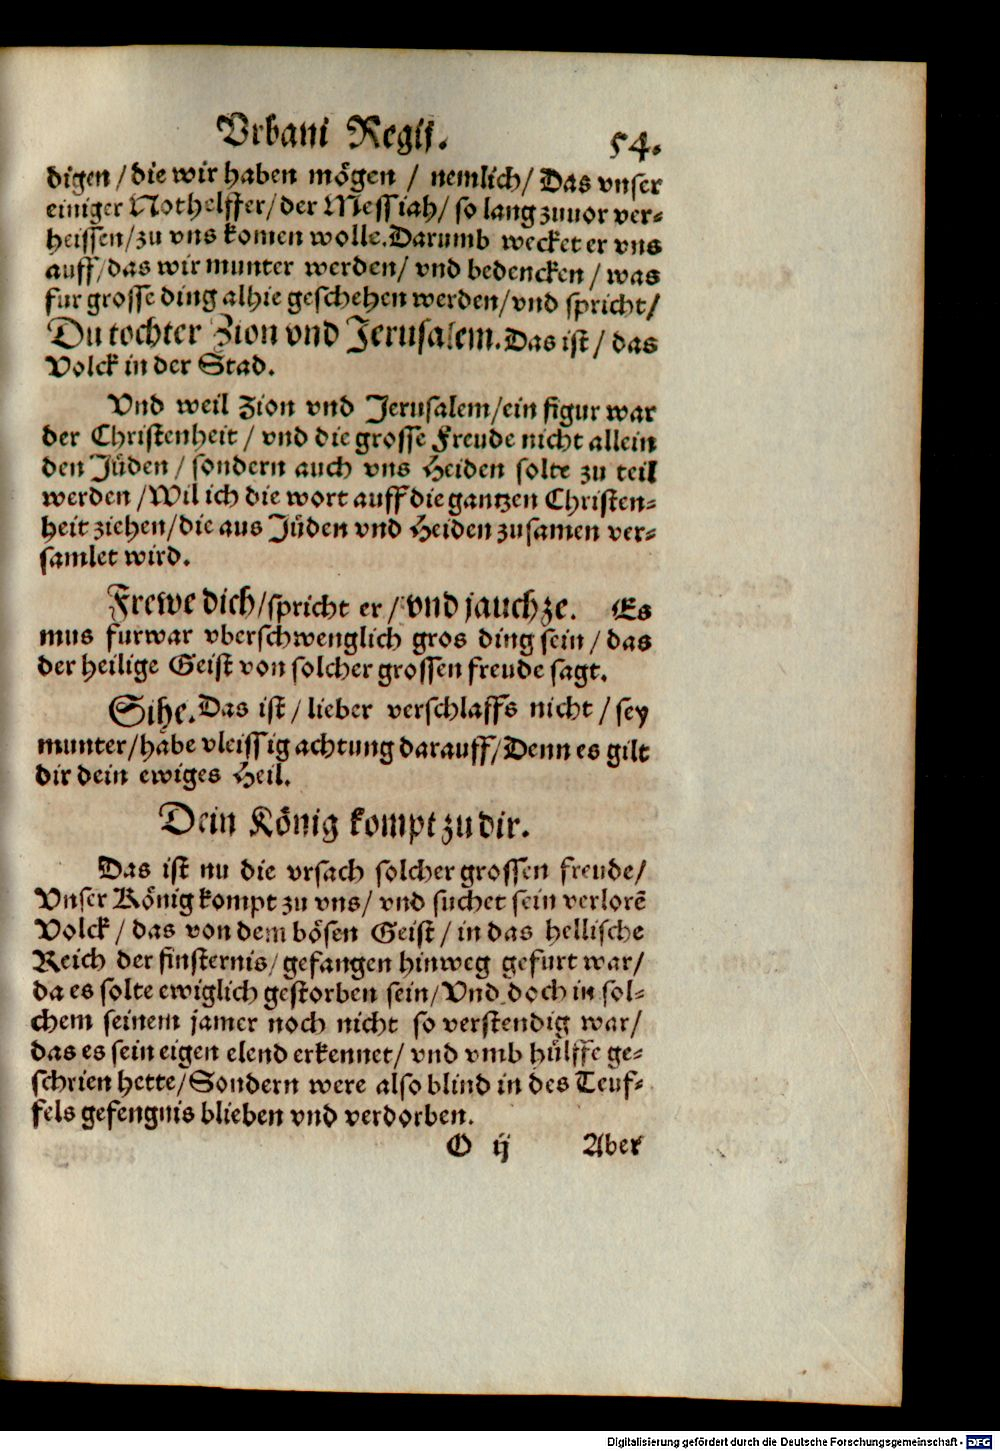 Vrbani Regij. 54.
digen / die wir haben mögen / nemlich / Das vnser
einiger Nothelffer / der Messiah / so lang zuuor ver-
heissen / zu vns komen wolle. Darumb wecket er vns
auff / das wir munter werden / vnd bedencken / was
fur grosse ding alhie geschehen werden / vnd spricht /
Du tochter Zion vnd Jerusalem. Das ist / das
Volck in der Stad.
Vnd weil Zion vnd Jerusalem / ein figur war
der Christenheit / vnd die grosse Freude nicht allein
den Jüden / sondern auch vns Heiden solte zu teil
werden / Wil ich die wort auff die gantzen Christen-
heit ziehen / die aus Jüden vnd Heiden zusamen ver-
samlet wird.
Frewe dich / spricht er / vnd jauchze. Es
mus furwar vberschwenglich gros ding sein / das
der heilige Geist von solcher grossen freude sagt.
Sihe. Das ist / lieber verschlaffs nicht / sey
munter / habe vleissig achtung darauff / Denn es gilt
dir dein ewiges Heil.
Dein König kompt zu dir.
Das ist nu die vrsach solcher grossen freude /
Vnser König kompt zu vns / vnd suchet sein verlorē
Volck / das von dem bösen Geist / in das hellische
Reich der finsternis / gefangen hinweg gefurt war /
da es solte ewiglich gestorben sein / Vnd doch in sol-
chem seinem jamer noch nicht so verstendig war /
das es sein eigen elend erkennet / vnd vmb hülffe ge-
schrien hette / Sondern were also blind in des Teuf-
fels gefengnis blieben vnd verdorben.
O ij Aber
Digitalisierung gefördert durch die Deutsche Forschungsgemeinschaft - DFG